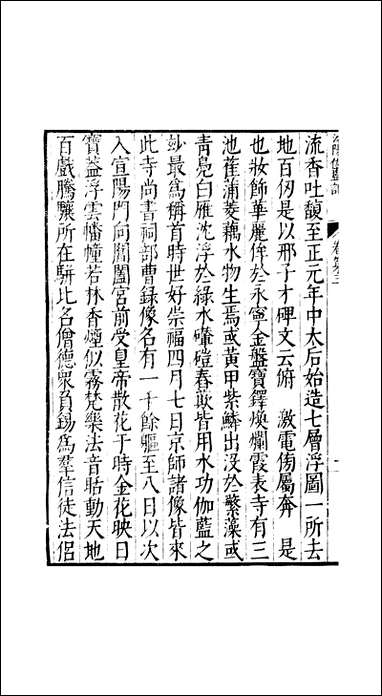 洛陽伽藍記 卷第三
流香吐馥至正元年中太后始造七層浮圖一所去
地百仞是以邢子才碑文云俯　激電傍屬奔　是
也妝飾華麗侔於永寧金盤寶鐸煥爛霞表寺有三
池萑蒲菱藕水物生焉或黃甲紫鱗出沒於繁藻或
青鳧白雁沈浮於綠水䃀磑舂簸皆用水功伽藍之
妙最爲稱首時世好崇福四月七日京師諸像皆來
此寺尚書祠部曹錄像名有一千餘軀至八日以次
入宣陽門向閶闔宮前受皇帝散花于時金花映日
寶蓋浮雲幡幢若林香煙似霧梵樂法音聒動天地
百戲騰驤所在駢比名僧德衆負錫爲羣信徒法侶